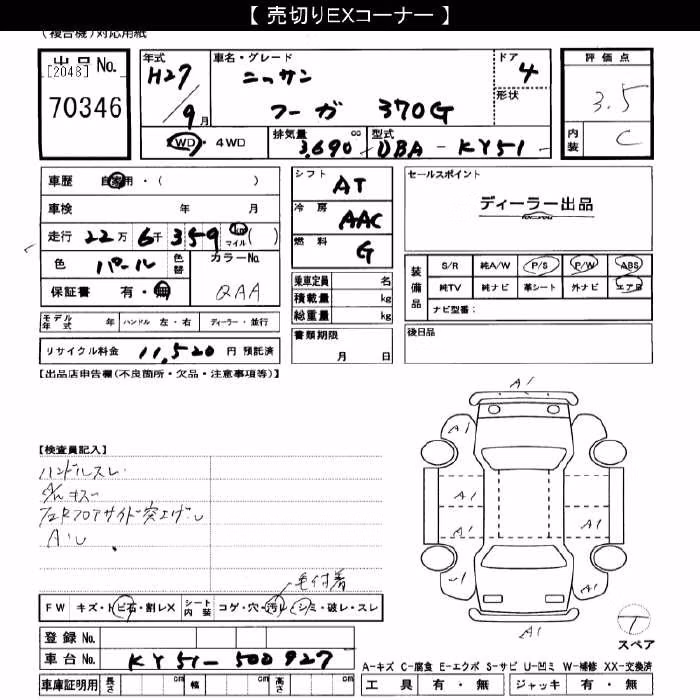 【 売切りEXコーナー 】
(複合機)対応用紙
出品 No. [2048] 70346
年式 H27/9月
車名・グレード ニッサン フーガ 370G
ドア 4
形状
評価点 3.5
内装 C
2WD・4WD
排気量 3,690 cc
型式 DBA-KY51
車歴 自家用・( )
車検 年 月
走行 22万6千359 km マイル ( )
色 パール 色替 カラーNo. QAA
保証書 有・無
シフト AT
冷房 AAC
燃料 G
乗車定員 名
積載量 kg
総重量 kg
セールスポイント
ディーラー出品
装備品 S/R 純A/W P/S P/W ABS
純TV 純ナビ 革シート 外ナビ エアB
ナビ型番:
モデル年式 年 ハンドル 左・右 ディーラー・並行
リサイクル料金 11,520 円 預託済
書類期限 月 日
後日品
【出品店申告欄(不良箇所・欠品・注意事項等)】
【検査員記入】
ハンドルスレ
A/W キズ
フロアサイド突上ゲ
A
毛付着
FW キズ・トビ石・割レX シート内装 コゲ・穴・汚レ・シミ・破レ・スレ
登録 No.
車台 No. KY51-500927
車庫証明用 長さ cm 幅 cm 高さ cm
A1
A1
A1
A1
A1
A1
A1
A1
T
スペア
A-キズ C-腐食 E-エクボ S-サビ U-凹ミ W-補修 XX-交換済
工具 有・無 ジャッキ 有・無